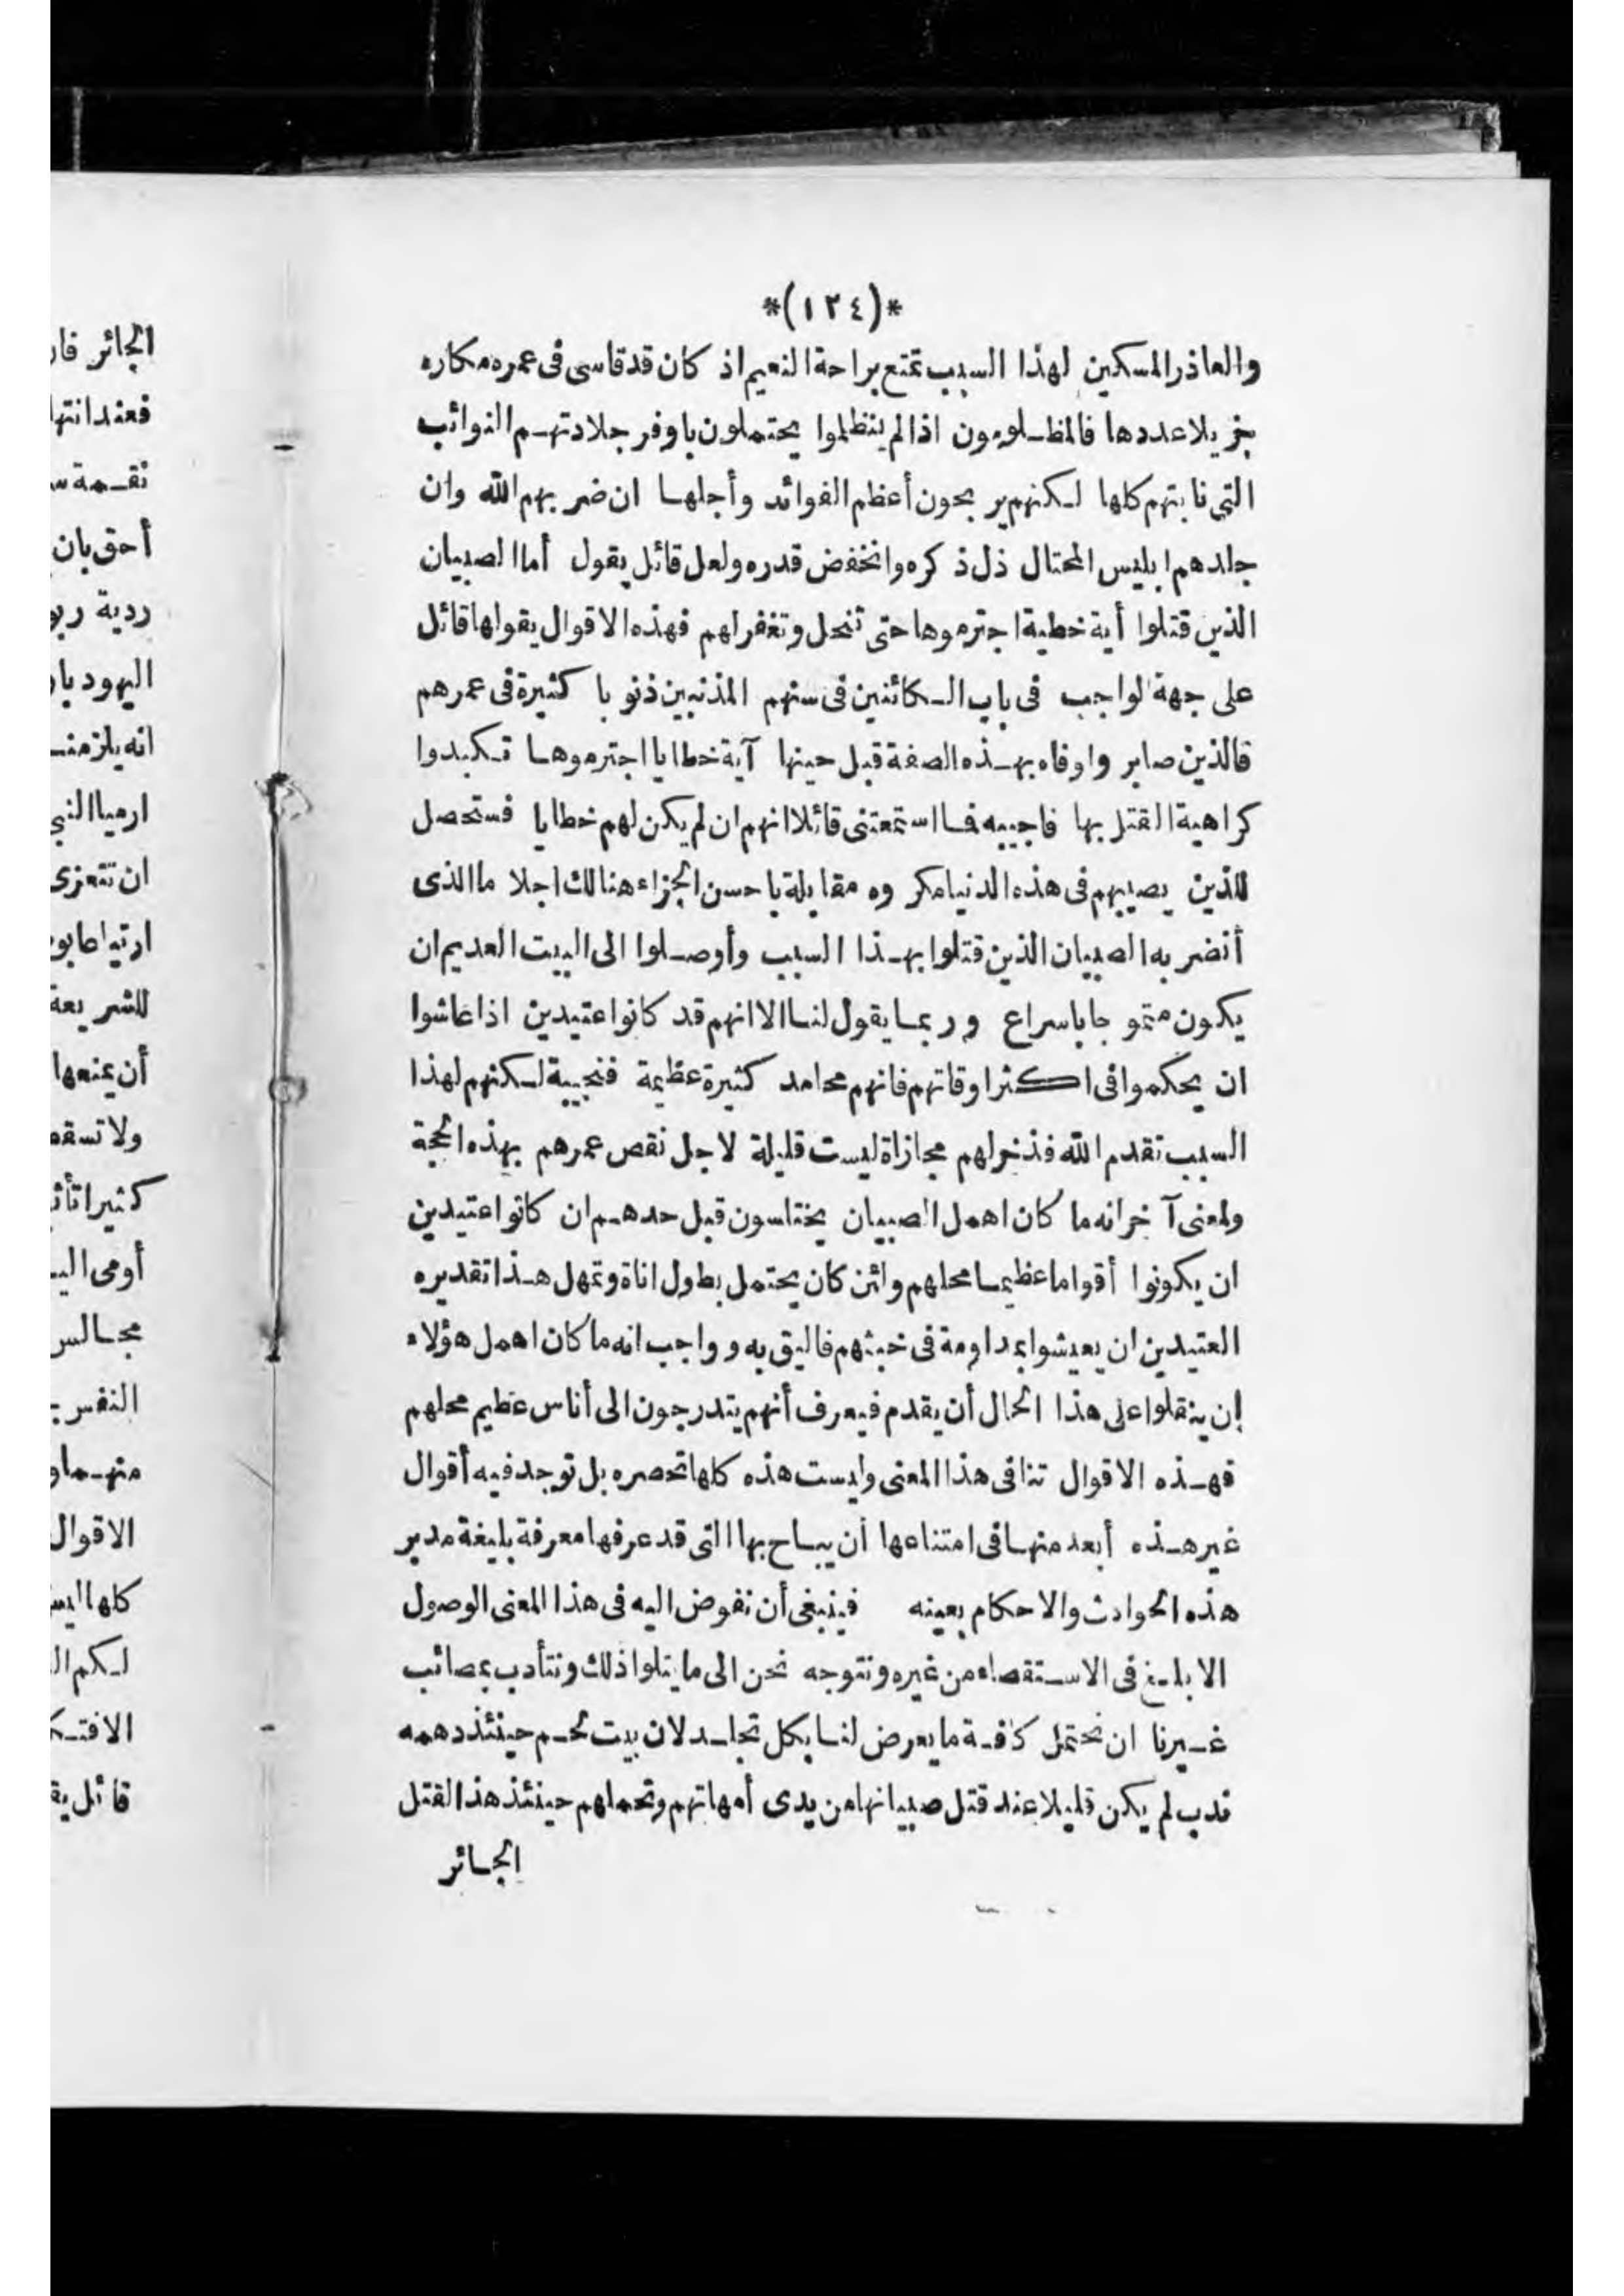 *(١٢٤)*
والعاذر المسكين لهذا السبب تمتع براحة النعيم اذ كان قد قاسى فى عمره مكاره
جزيلا عددها فالمظلومون اذا لم يتظلموا يحتملون باوفر جلادتهم النوائب
التى نابتهم كلها لكنهم يربحون أعظم الفوائد وأجلها ان ضربهم الله وان
جلدهم ابليس المحتال ذل ذكره وانخفض قدره ولعل قائل يقول أما الصبيان
الذين قتلوا أية خطية اجترموها حتى تنحل وتغفر لهم فهذه الاقوال يقولها قائل
على جهة لواجب فى باب الكائنين فى سنهم المذنبين ذنوبا كثيرة فى عمرهم
فالذين صابروا وفاه بهذه الصفة قبل حينها آية خطايا اجترموها تكبدوا
كراهية القتل بها فاجيبه فما استمعتنى قائلا انهم ان لم يكن لهم خطايا فستحصل
للذين يصيبهم فى هذه الدنيا مكروه مقابلة باحسن الجزاء هنالك اجلا ما الذى
أنضر به الصبيان الذين قتلوا بهذا السبب وأوصلوا الى البيت العديم ان
يكون متموجا باسراع وربما يقول لنا الا انهم قد كانوا عتيدين اذا عاشوا
ان يحكموا فى اكثر اوقاتهم فانهم محامد كثيرة عظيمة فنجيبة لكنهم لهذا
السبب تقدم الله فذخر لهم مجازاة ليست قليلة لاجل نقص عمرهم بهذه الحجة
ولمعنى آخر انه ما كان اهمل الصبيان يختلسون قبل حدهم ان كانوا عتيدين
ان يكونوا أقواما عظيما محلهم ولئن كان يحتمل بطول اناة وتمهل هذا تقديره
العتيدين ان يعيشوا بمداومة فى خبثهم فاليق به وواجب انه ما كان اهمل هؤلاء
إن ينقلوا على هذا الحال أن يقدم فيعرف أنهم يتدرجون الى أناس عظيم محلهم
فهذه الاقوال تنافى هذا المعنى وليست هذه كلها تحصره بل توجد فيه أقوال
غير هذه أبعد منها فى امتناعها أن يباح بها التى قد عرفها معرفة بليغة مدبر
هذه الحوادث والاحكام بعينه فينبغى أن نفوض اليه فى هذا المعنى الوصول
الابلغ فى الاستقصاء من غيره ونتوجه نحن الى ما يتلوا ذلك ونتأدب بمصائب
غيرنا ان نحتمل كافة ما يعرض لنا بكل تجلد لان بيت لحم حينئذ دهمه
ندب لم يكن قليلا عند قتل صبيانها من يدى أمهاتهم وتحملهم حينئذ هذا القتل
الجائر
الجائر فان
فعند انتها
نقمة
أحق بان
ردية
اليهود
انه يلزمنا
ارميا النبى
ان تتعزى
للشريعة
أن يمنعها
كثيرا
أومى
مجالس
النفس
الاقوال
كلها
قائل